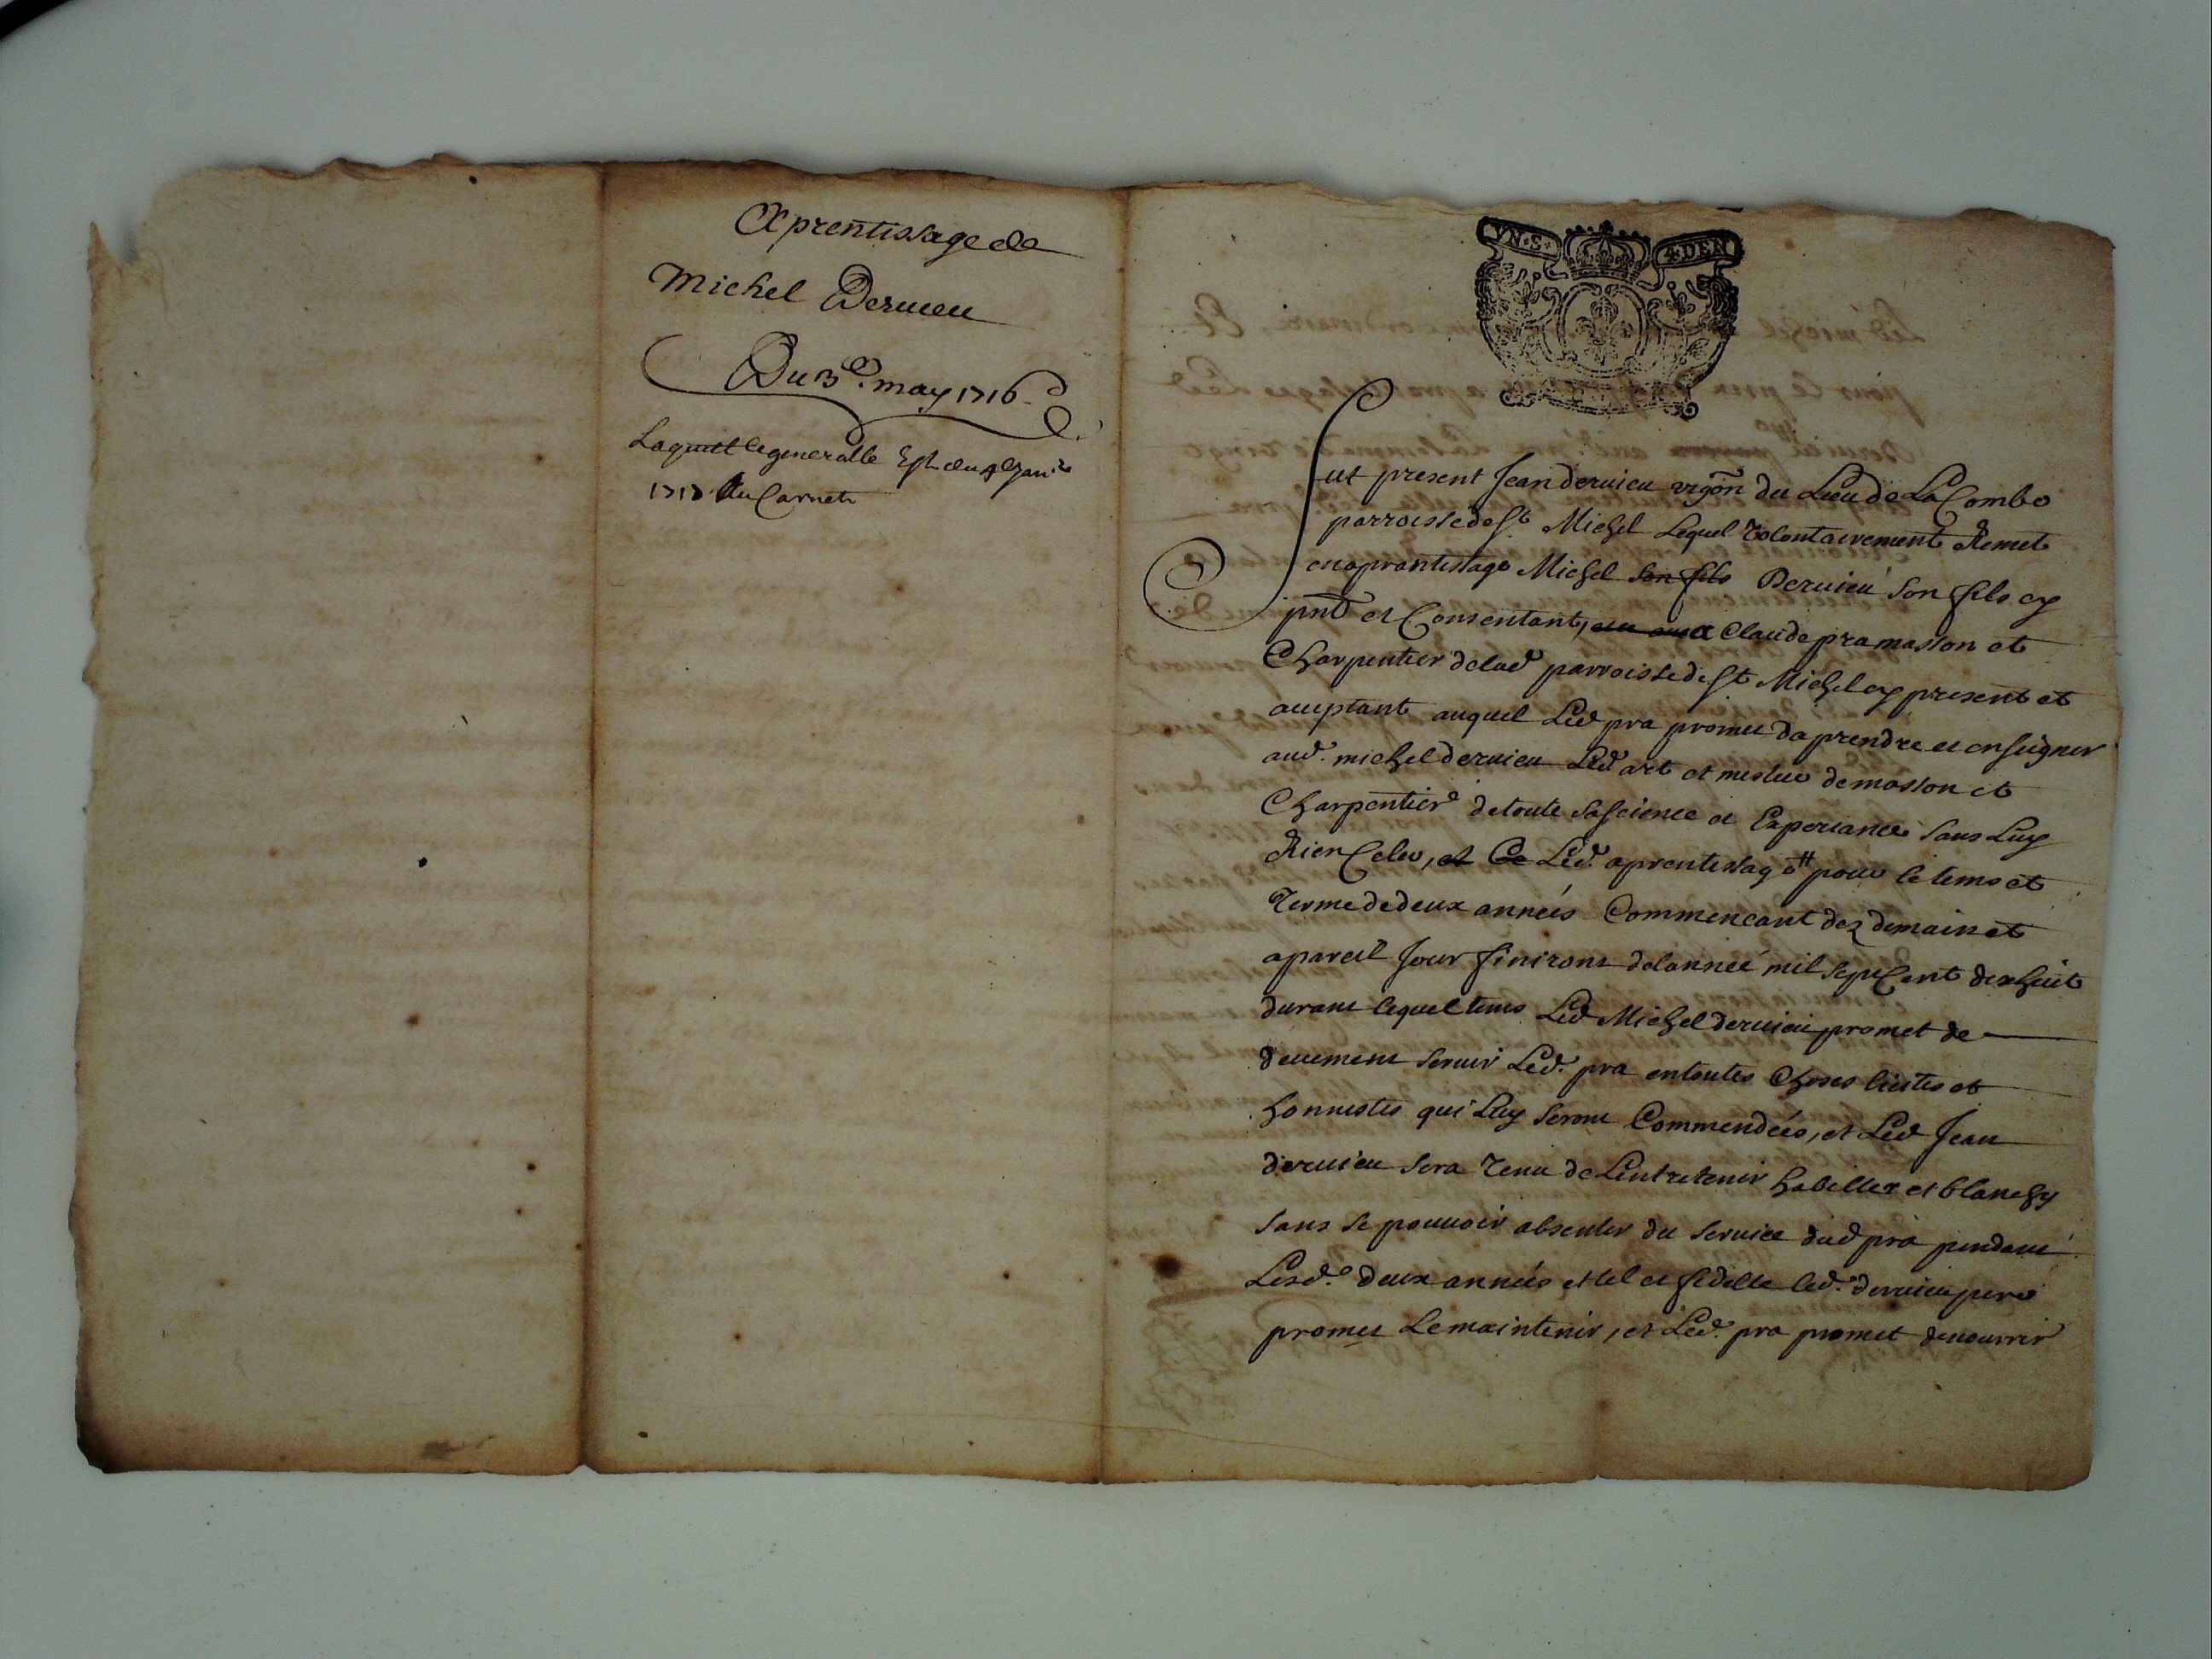 Aprentissage de
Michel Deruieu
Du 3e. may 1716
La quittce generalle Est du 4e Janer
1717 Au Carnet
VN·S· 4·DEN
Fut present Jean deruieu vigon du Lieu de La Combe
parroisse de St Michel Lequel volontairement Remet
en aprantissage Michel son fils Deruieu son fils cy
pnt et Consentant, a Claude pra masson et
Charpentier de lad parroisse de St Michel cy present et
aceptant auquel Led pra promet daprendre et enseigner
aud. michel deruieu Led art et mestier de masson et
Charpentier detoute sa science et Experiance sans Luy
Rien Celer, et Ce Led. aprentissage pour le tems et
Terme de deux années Commencant dez demain et
a pareil Jour finiront de lanneé mil sept Cent dixhuit
durant lequel tems Led Michel deruieu promet de
deuement seruir Led. pra en toutes Choses licites et
honnestes qui Luy seront Commendées, et Led Jean
deruieu sera Tenu de Lentretenir habiller et blanchy
sans se pouuoir absenter du seruice dud pra pendant
Lesd. deux années et tel et fidelle led. deruieu pere
promet Le maintenir, et Led. pra promet de nourrir